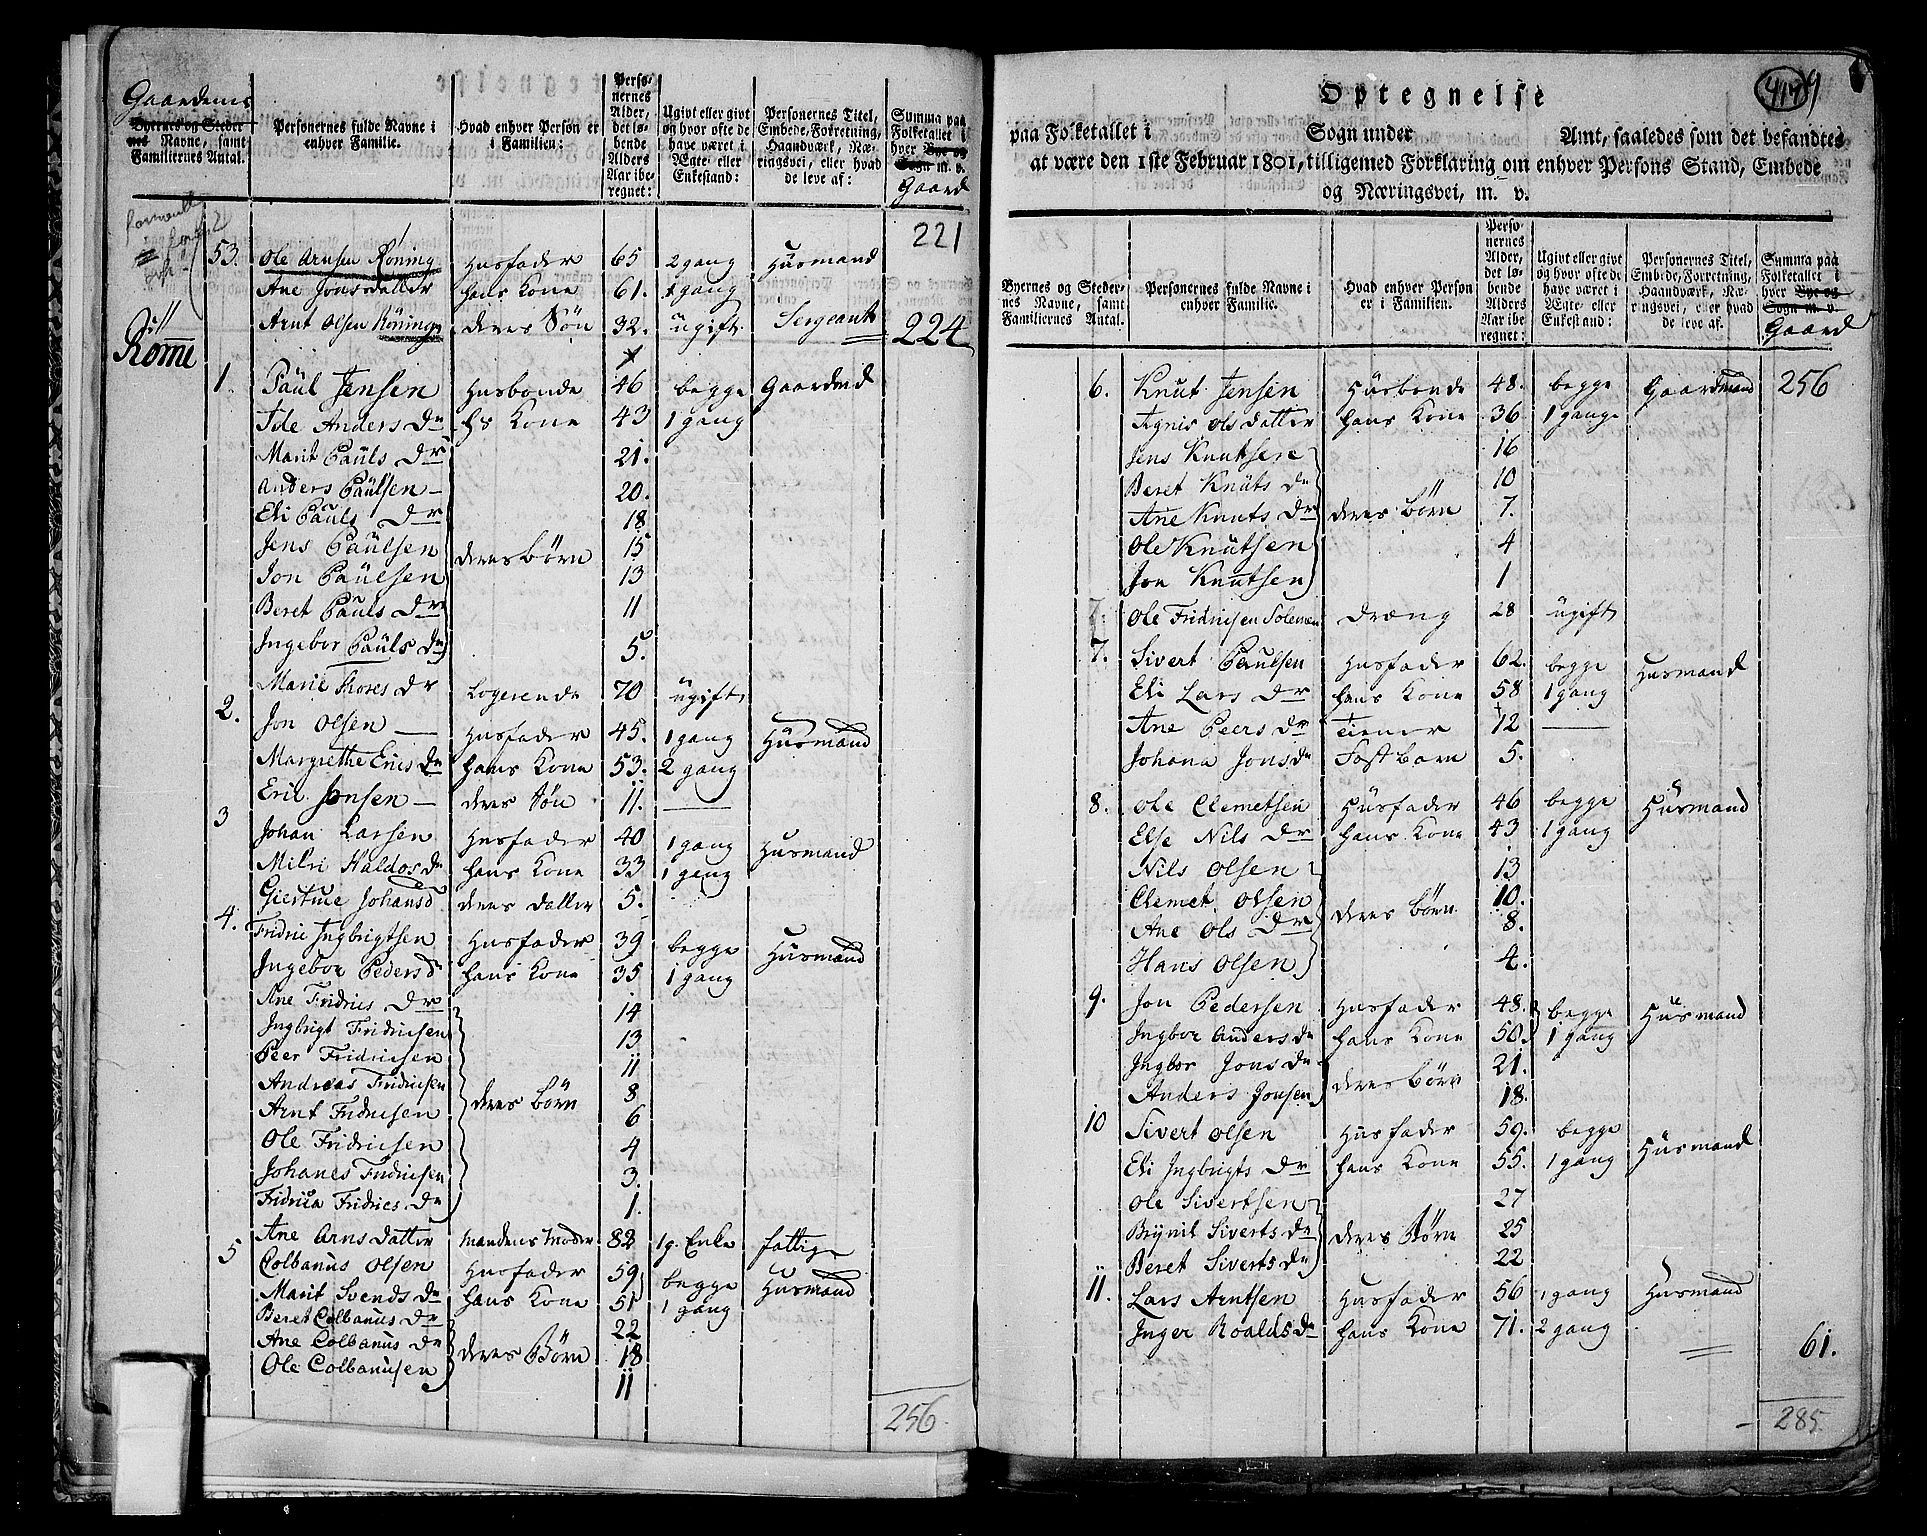 Gaardenes
Byernes og Steder
nes Navne, samt
Familiernes Antal.
Personernes fulde Navne i
enhver Familie.
Hvad enhver Person er
i Familien:
Perso-
nernes
Alder,
det lø-
bende
Alders
Aar ibe-
regnet:
Ugivt eller givt
og hvor ofte de
have været i
Ægte- eller
Enkestand:
Personernes Titel,
Embede, Forretning,
Haandværk, Næ-
ringsvei, eller hvad
de leve af:
Summa paa
Folketallet i
hver Bye og
Sogn m. v.
Gaard
221
53. Ole Arnsen Röning Husfader 65 2 gang Husmand
Ane Jonsdatter hans Kone 61. 1 gang
Arnt Olsen Röning deres Søn 32. ugift Sergeant 224
Röme
1. Paul Jensen Husbonde 46 begge Gaardmd
Ide Anders Dr hs Kone 43 1 gang
Marit Pauls Dr 21.
Anders Paulsen — 20.
Eli Pauls Dr 18
Jens Paulsen deres Børn 15
Jon Paulsen 13
Beret Pauls Dr 11
Ingebor Pauls Dr 5.
Marit Thores Dr Logerende 70 ugift
2. Jon Olsen — Husfader 45. 1 gang Husmand
Margrethe Erics Dr hans Kone 53. 2 gang
Eric Jonsen — deres Søn 11. —
3 Johan Larsen Husfader 40 1 gang Husmand
Haldos Dr hans Kone 33 1 gang
Giertrue Johansd deres datter 5.
4. Fridric Ingbrigtsen Husfader 39 begge Husmand
Ingebor Pedersd hans Kone 35 1 gang
Ane Fridrics Dr 14
Ingbrigt Fridricsen 13
Peer Fridricsen 11
Andreas Fridricsen 8
Arnt Fridricsen deres Børn 6
Ole Fridricsen 4
Johanes Fridricsen 3.
Fridrica Fridrics Dr 1.
Ane Arnsdatter Mandens Moder 82 1 g. Enke fattige
5 Colbanus Olsen Husfader 59 begge Husmand
Marit Svends Dr hans Kone 51 1 gang
Beret Colbanus Dr 22
Ane Colbanus Dr deres Børn 18
Ole Colbanusen 11
256
Optegnelse
paa Folketallet i Sogn under Amt, saaledes som det befandtes
at være den 1ste Februar 1801, tilligemed Forklaring om enhver Persons Stand, Embede
og Næringsvei, m. v.
Byernes og Steder-
nes Navne, samt
Familiernes Antal.
Personernes fulde Navne i
enhver Familie.
Hvad enhver Person
er i Familien.
Perso-
nernes
Alder,
det lø-
bende
Alders
Aar ibe-
regnet:
Ugivt eller givt
og hvor ofte de
have været i
Ægte- eller
Enkestand:
Personernes Titel,
Embede, Forretning,
Haandværk, Næ-
ringsvei, eller hvad
de leve af.
Summa paa
Folketallet i
hver Bye og
Sogn m. v.
Gaard
6. Knut Jensen Husbonde 48. begge Gaardmand 256
Agnis Olsdatter hans Kone 36 1 gange
Jens Knutsen 16
Beret Knuts Dr 10
Ane Knuts Dr deres Børn 7.
Ole Knutsen 4
Jon Knutsen 1
Ole Fridricsen Solemen Dræng 28 ugift
7. Sivert Paulsen Husfader 62. begge Husmand
Eli Lars Dr hans Kone 58 1 gang
Ane Peers Dr Tiener 12 —
Johana Jons Dr Fost barn 5.
8. Ole Clemetsen Husfader 46 begge Husmand
Else Nils Dr hans Kone 43 1 gang
Nils Olsen 13
Clemet Olsen deres Børn 10.
Ane Ols Dr 8.
Hans Olsen 4.
9. Jon Pedersen Husfader 48. begge Husmand
Ingbor Anders Dr hans Kone 50. 1 gang
Ingbor Jons Dr deres børn 21.
Anders Jonsen 18.
10 Sivert Olsen Husfader 59. begge Husmand
Eli Ingbrigts Dr hans Kone 55. 1 gang
Ole Sivertsen 27
Brynil Siverts Dr deres Børn 25
Beret Siverts Dr 22
11. Lars Arntsen Husfader 56 1 gang Husmand
Inger Roalds Dr hans Kone 71. 2 gang
61.
285